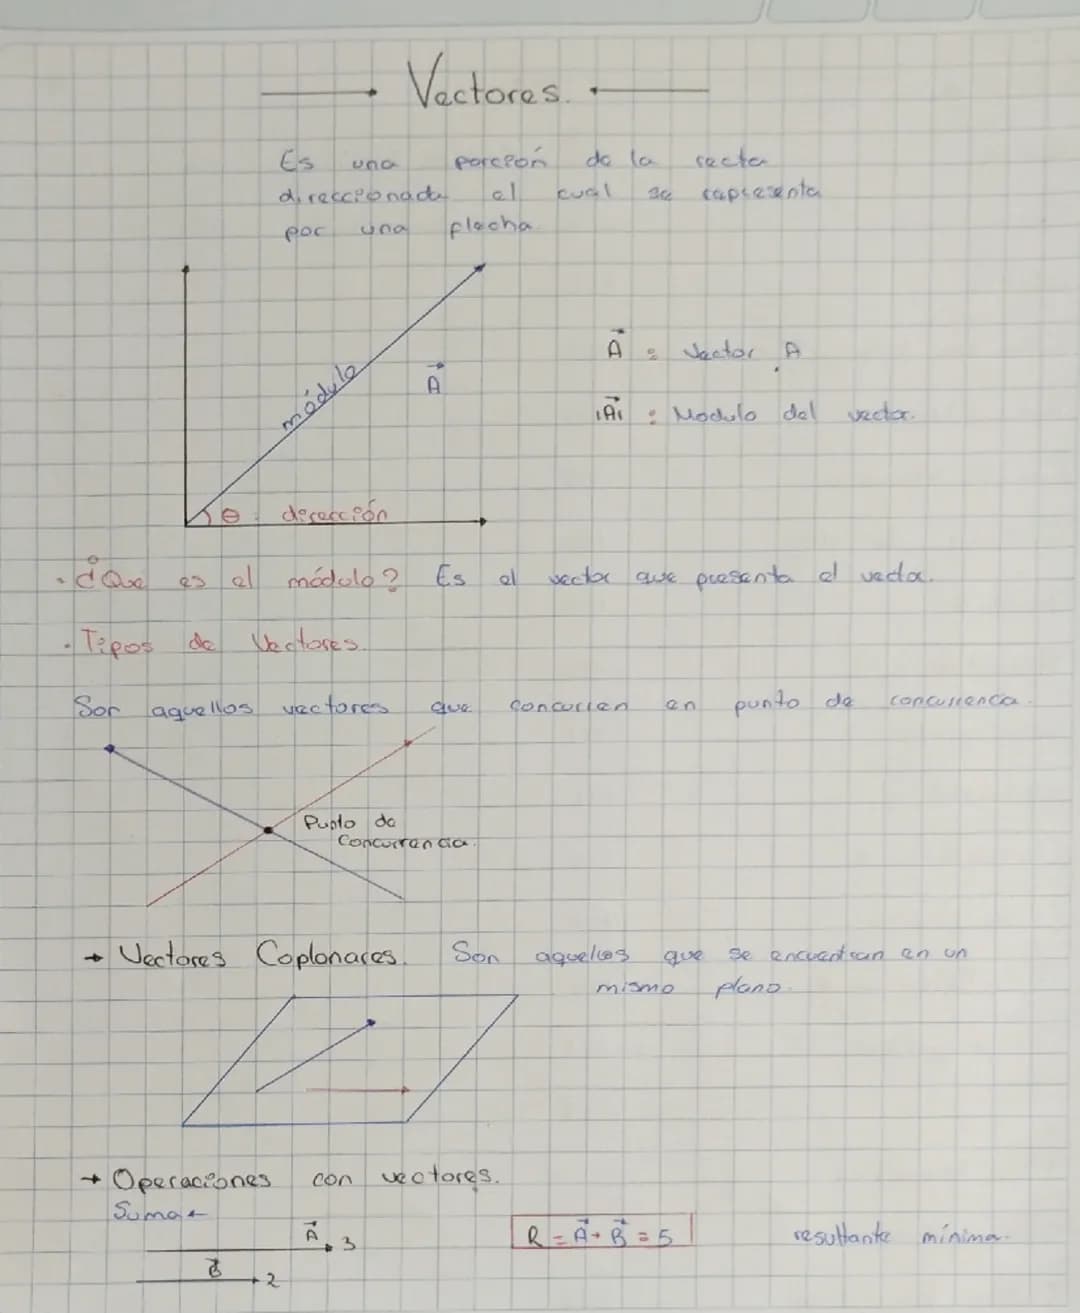 Vectores.
Es una porción de la recta
direccionada el cual se representa
por una flecha.
módulo
A⃗
A⃗ = Vector A
|A⃗| : Modulo del vector.
θ: dirección
• ¿Que es el módulo? Es el vector que presenta el vector.
• Tipos de Vectores.
Son aquellos vectores que concurren en punto de concurrencia.
Punto de
Concurrencia.
→ Vectores Coplonares. Son aquellos que se encuentran en un
mismo plano.
→ Operaciones con vectores.
Suma ←
A⃗ 3
B⃗ 2
R = A⃗ + B⃗ = 5
resultante mínima.